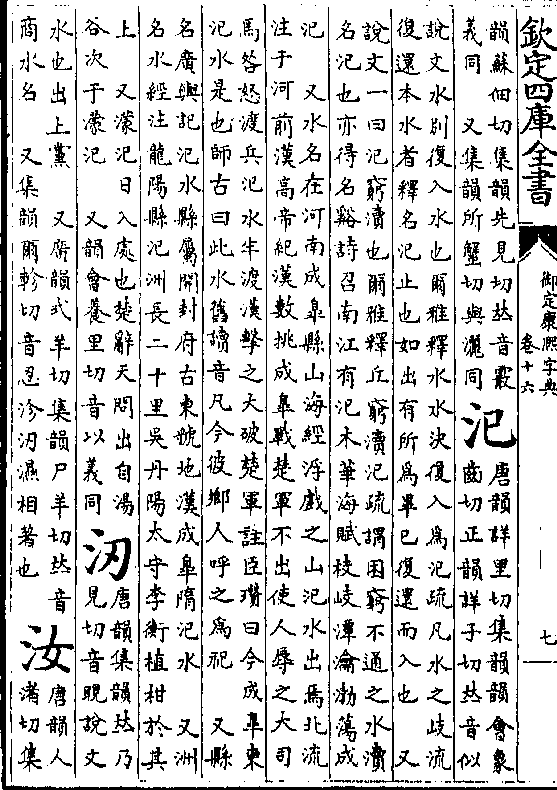 欽定四庫全書
御定康熙字典
卷十六
七
韻蘇佃切集韻先見切𠀤音霰
義同　又集韻所蟹切與灑同　汜　唐韻詳里切集韻韻會象
齒切正韻詳子切𠀤音似
說文水別復入水也爾雅釋水水決復入為汜疏凡水之岐流
復還本水者釋名汜止也如出有所為畢已復還而入也　又
說文一曰汜窮瀆也爾雅釋丘窮瀆汜疏謂困窮不通之水瀆
名汜也亦得名谿詩召南江有汜木華海賦枝岐潭瀹渤蕩成
汜　又水名在河南成臯縣山海經浮戲之山汜水出焉北流
注于河前漢高帝紀漢數挑成臯戰楚軍不出使人辱之大司
馬咎怒渡兵汜水半渡漢擊之大破楚軍註臣瓚曰今成臯東
汜水是也師古曰此水舊讀音凡今彼鄉人呼之為祀　又縣
名廣輿記汜水縣屬開封府古東虢地漢成臯隋汜水　又洲
名水經注龍陽縣汜洲長二十里吳丹陽太守李衡植柑於其
上　又濛汜日入處也楚辭天問出自湯
谷次于濛汜　又韻會養里切音以義同　汈　唐韻集韻𠀤乃
見切音晛說文
水也出上黨　又廣韻式羊切集韻尸羊切𠀤音
商水名　又集韻爾軫切音忍沴汈濕相著也　汝　唐韻人
渚切集